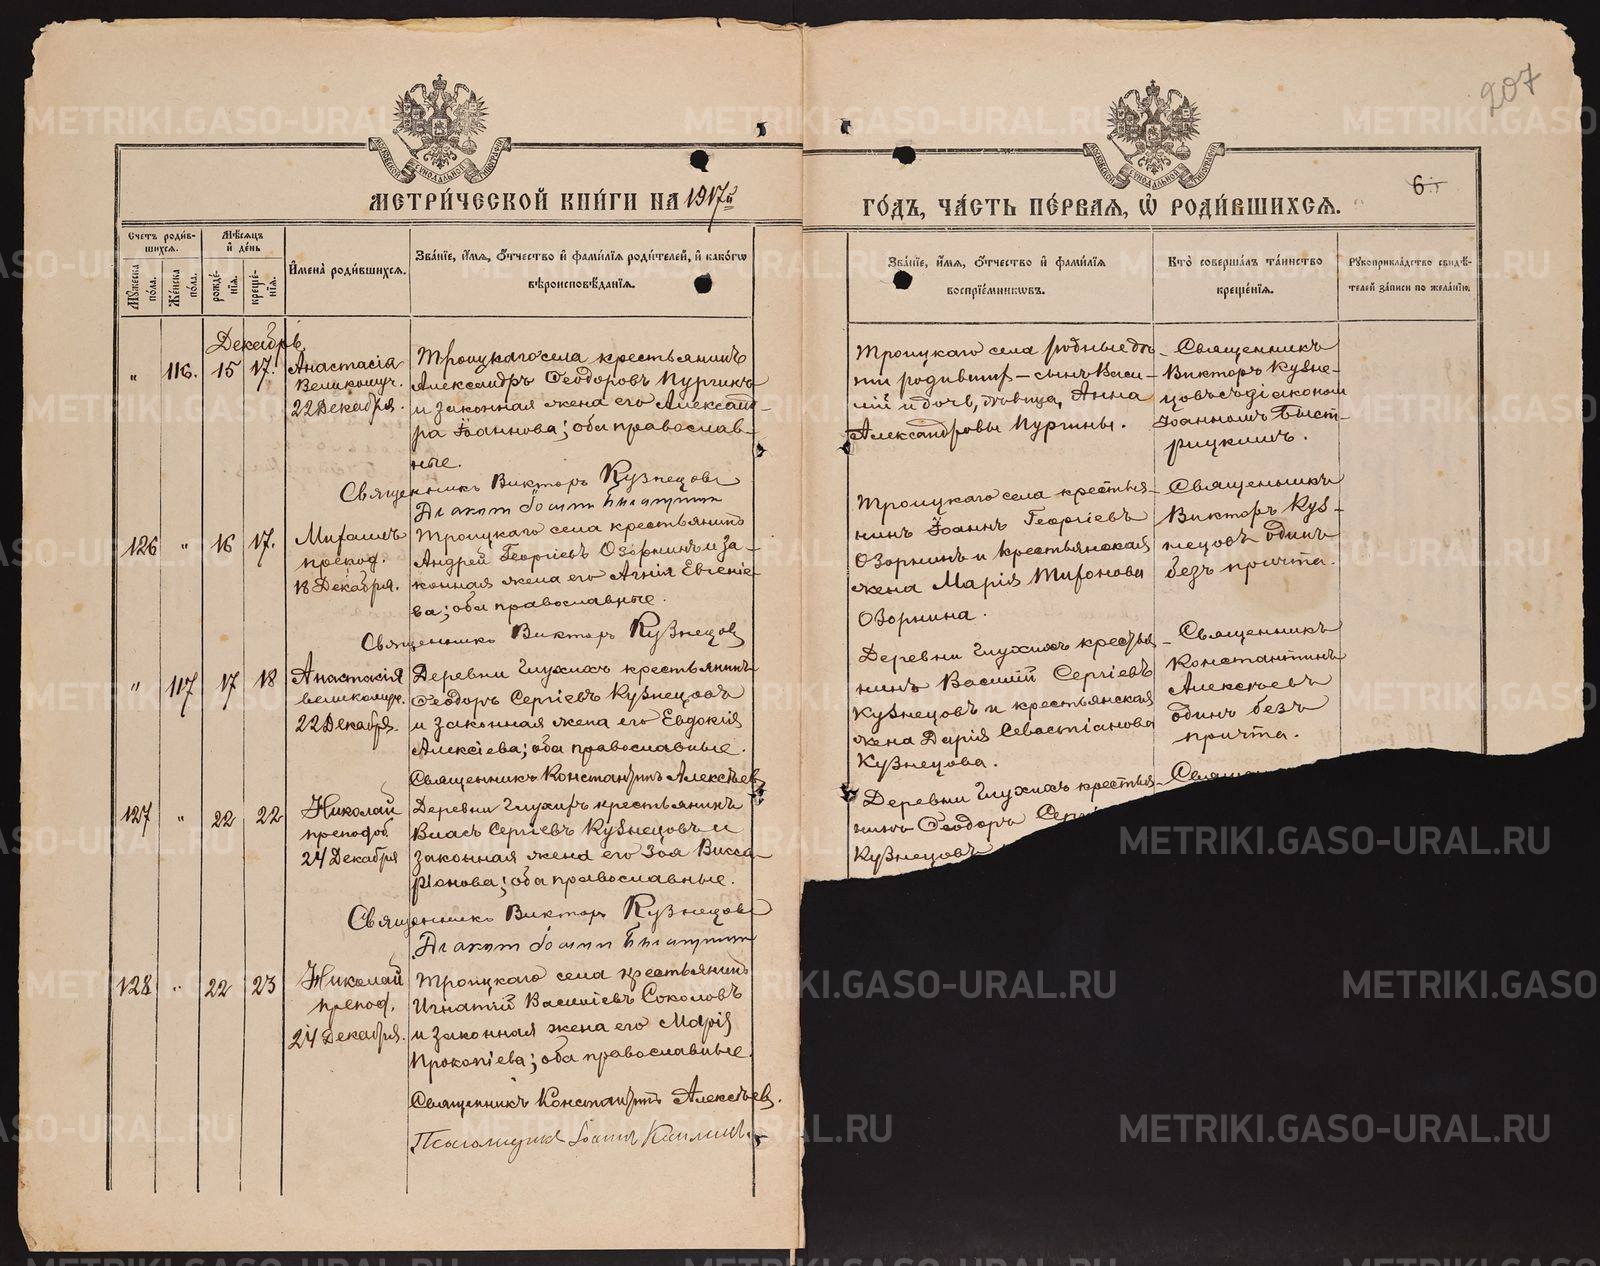 207
6
МЕТРИ́ЧЕСКОЙ КНИ́ГИ НА 1917й ГО́ДЪ, ЧА́СТЬ ПЕ́РВАЯ, Ѡ РОДИ́ВШИХСЯ.
Счетъ роди́вшихся.
Мѣ́сяцъ и де́нь
Му́жеска по́ла.
Же́нска по́ла.
рожде́нїя.
креще́нїя.
Имена̀ роди́вшихся.
Зва́нїе, и́мя, о́тчество и фами́лїя роди́телей, и како́гѡ
вѣроисповѣ́данїя.
Зва́нїе, и́мя, о́тчество и фами́лїя
воспрїе́мниковъ.
Кто̀ соверша́лъ та́инство
креще́нїя.
Рукоприкла́дство свидѣ́-
телей за́писи по жела́нїю.
Декабрь
" 116. 15 17.
Анастасія
Великомуч.
22 Декабря.
Троицкаго села крестьянинъ
Александръ Ѳеодоровъ Пургинъ
и законная жена его Александ-
ра Іоаннова; оба православ-
ные.
Священникъ Викторъ Кузнецовъ
Діаконъ Іоаннъ
Троицкаго села родные дѣ-
ти родившіе – сынъ Васи-
лій и дочь, дѣвица, Анна
Александровы Пургины.
Священникъ
Викторъ Кузне-
цовъ съ діакономъ
Іоанномъ Быст-
рицкимъ.
126 " 16 17.
Михаилъ
препод.
18 Декабря.
Троицкаго села крестьянинъ
Андрей Георгіевъ Озорнинъ и за-
конная жена его Агнія Евгеніе-
ва; оба православные.
Священникъ Викторъ Кузнецовъ
Троицкаго села крестья-
нинъ Іоаннъ Георгіевъ
Озорнинъ и крестьянская
жена Марія Тифонова
Озорнина.
Священникъ
Викторъ Куз-
нецовъ одинъ
безъ причта.
" 117 17 18
Анастасія
великомуч.
22 Декабря.
Деревни Глухихъ крестьянинъ
Ѳеодоръ Сергіевъ Кузнецовъ
и законная жена его Евдокія
Алексіева; оба православные.
Священникъ Константинъ Алексѣевъ
Деревни Глухихъ крестья
нинъ Василій Сергіевъ
Кузнецовъ и крестьянская
жена Дарія Севастіанова
Кузнецова.
Священникъ
Константинъ
Алексѣевъ
одинъ безъ
причта.
127 " 22 22
Николай
преподоб.
24 Декабря
Деревни Глухихъ крестьянинъ
Власъ Сергіевъ Кузнецовъ и
законная жена его Зоя Висса-
ріонова; оба православные.
Священникъ Викторъ Кузнецовъ
Діаконъ Іоаннъ
Деревни Глухихъ крестья-
нинъ Ѳеодоръ Серг
Кузнецовъ и
Священ
128 " 22 23
Николай
препод.
24 Декабря.
Троицкаго села крестьянинъ
Игнатій Василіевъ Соколовъ
и законная жена его Марія
Прокопіева; оба православные.
Священникъ Константинъ Алексѣевъ.
Псаломщикъ Іоаннъ
METRIKI.GASO-URAL.RU